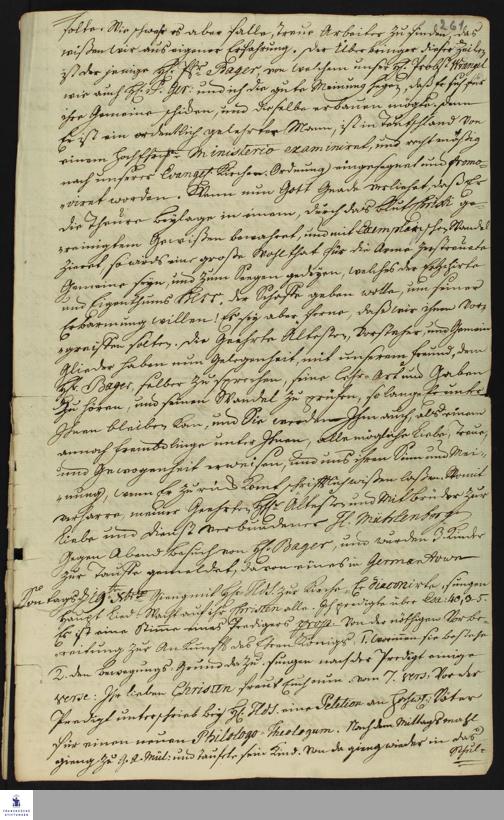 261.
solte. Wie schwer es aber falle, treue Arbeiter zu finden, das
wißen wir aus eigener Erfahrung. Der Überbringer dieser Zeilen
ist derjenige H. Bager, von welchem unser H. Probst Wrangel
wie auch und ich die gute Meinung hegen, daß Er sich für
ihre Gemeine schicken, und dieselbe erbauen mögte. Denn
Er ist ein ordentlich gelehrter Mann, ist in Teutschland von
einem Ministerio examiniret, und rechtmäßig
nach unserer Evangel. Kirchen-Ordnung eingesegnet und promo-
viret worden. Wann nun Gott Gnade verleihet, daß Er
die Theure Beylage in einem, durch das Blut Christi ge-
reinigtem Gewißen bewahret, und mit Exemplarischen Wandel
zieret, so wirds eine große Wohlthat für die arme zerstreute
Gemeine seyn, und zum Seegen gedeyen, welches der
und Eigenthums Herr, der Schaafe geben wolle, um seiner
Erbarmung willen! Es sey aber ferne, daß wir Ihnen vor-
greiffen solten. Die Geehrte Ältesten, Vorsteher und Gemein
Glieder haben nun Gelegenheit, mit unserem Freund, dem
H. Bager, selber zu sprechen, seine Lehr-Art und Gaben
zu hören, und seinen Wandel zu prüfen, so lange Er unter
Ihnen bleiben kan, und Sie werden Ihm auch, als einem
annoch Fremdlinge unter Ihnen, alle mögliche Liebe, Treue,
und Gewogenheit erweisen, und uns ihren Sinn und Mei-
nung, wenn Er zurück komt, schriftlich wißen laßen. Womit
verharre, meiner Geehrten Ältesten und Mitbrüder zur
Liebe und Dienst verbundener H. Mühlenberg
Gegen Abend Besuch von H. Bager, und wurden 3. Kinder
zur Tauffe gemeldet, davon eines in Germantown
Sontags d. 19. giengen mit zur Kirche. Er diaconirte, sungen
Haupt Lied: Wacht auf ihr Christen alle. Ich predigte über Esa: 40, 3-5.
Es ist eine Stimme eines Predigers prop: Von der nöthigen Vorbe-
reitung zur Ankunft des Ehren Königs 1. worinnen sie bestehe
2. den Bewegungs Grund dazu. sungen nach der Predigt einige
verse: Ihr lieben Christen freut Euch nun. vom 7. vers. Vor der
Predigt unterschrieb bey eine Petition an Väter
für einen neuen Philologo-Theologum. Nach dem Mittagsmahl
gieng zu und tauffte sein Kind. Von da gieng wieder in das
Schul-
FRANCKESCHE STIFTUNGEN